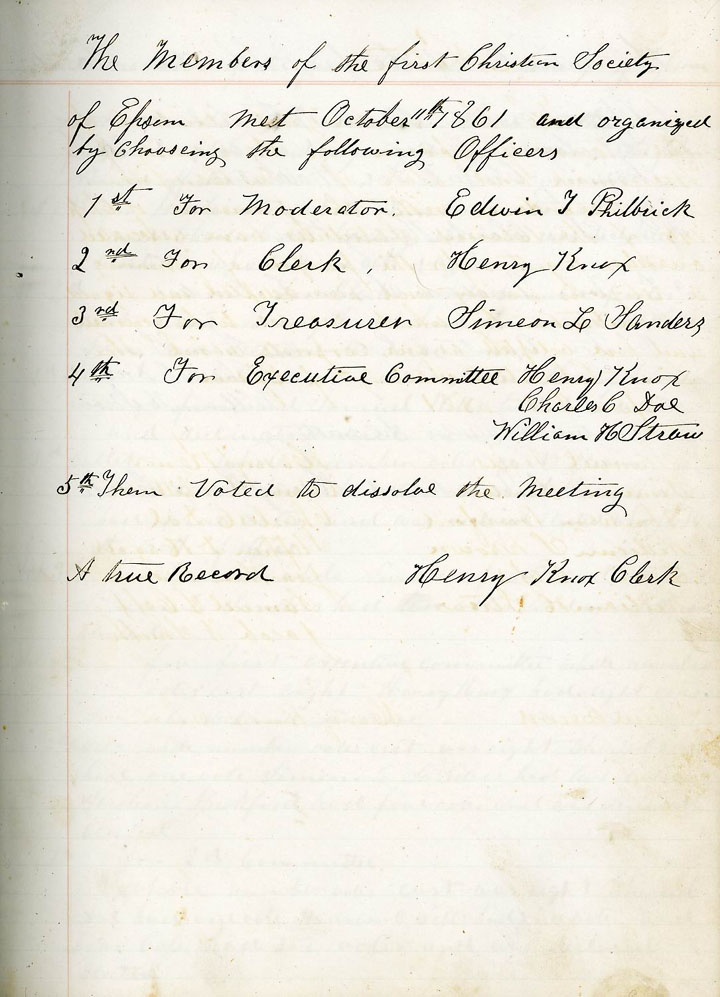 The Members of the first Christian Society
of Epsom met October 11th 1861 and organized
by Chooseing the following Officers
1st For Moderator. Edwin T Philbrick
2nd For Clerk, Henry Knox
3rd For Treasurer Simeon L Sanders
4th For Executive Committee Henry Knox
Charles C Doe
William H Straw
5th Them Voted to dissolve the Meeting
A true Record Henry Knox Clerk